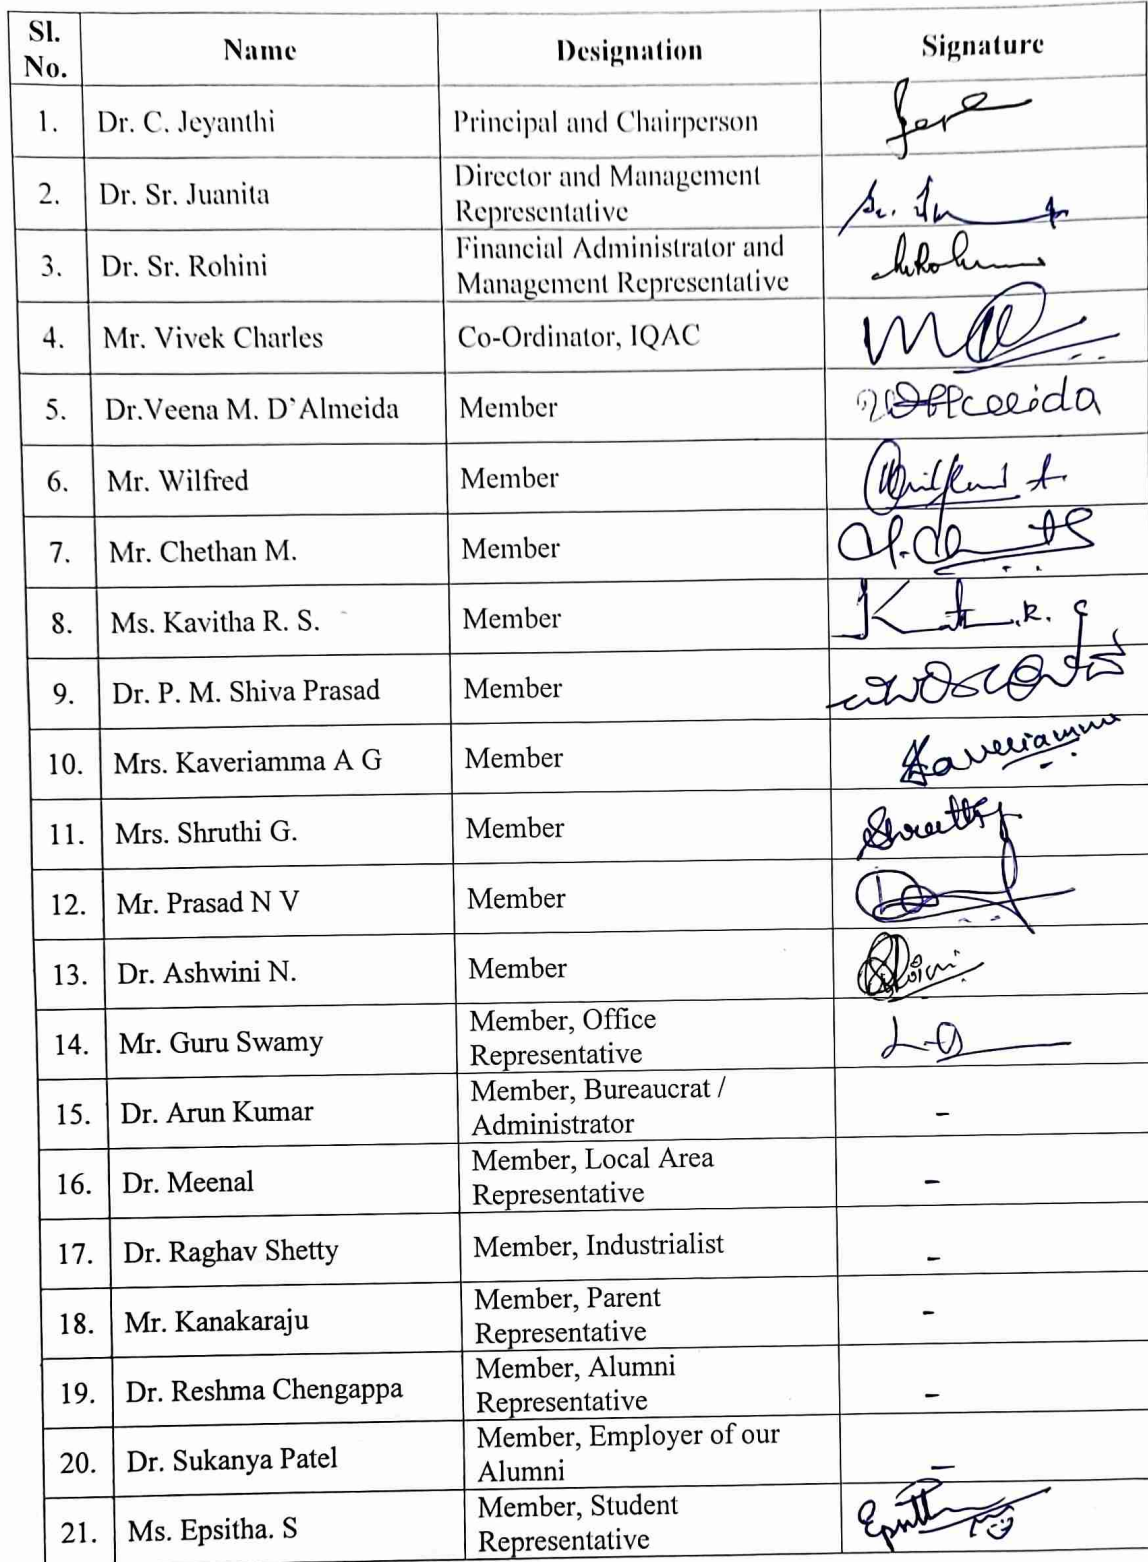 Sl. No. Name Designation Signature
1. Dr. C. Jeyanthi Principal and Chairperson
2. Dr. Sr. Juanita Director and Management
Representative
3. Dr. Sr. Rohini Financial Administrator and
Management Representative
4. Mr. Vivek Charles Co-Ordinator, IQAC
5. Dr.Veena M. D`Almeida Member
6. Mr. Wilfred Member
7. Mr. Chethan M. Member
8. Ms. Kavitha R. S. Member
9. Dr. P. M. Shiva Prasad Member
10. Mrs. Kaveriamma A G Member Kaveriamma
11. Mrs. Shruthi G. Member
12. Mr. Prasad N V Member
13. Dr. Ashwini N. Member
14. Mr. Guru Swamy Member, Office
Representative
15. Dr. Arun Kumar Member, Bureaucrat / -
Administrator
16. Dr. Meenal Member, Local Area -
Representative
17. Dr. Raghav Shetty Member, Industrialist -
18. Mr. Kanakaraju Member, Parent -
Representative
19. Dr. Reshma Chengappa Member, Alumni -
Representative
20. Dr. Sukanya Patel Member, Employer of our -
Alumni
21. Ms. Epsitha. S Member, Student
Representative